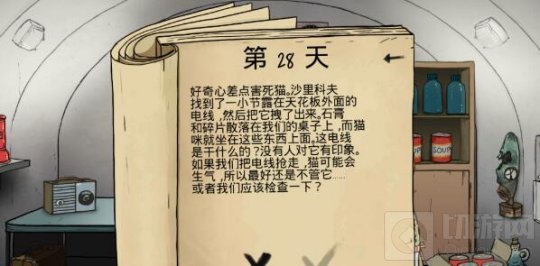 第 28 天
好奇心差点害死猫。沙里科夫
找到了一小节露在天花板外面的
电线，然后把它拽了出来。石膏
和碎片散落在我们的桌子上，而猫
咪就坐在这些东西上面。这电线
是干什么的？没有人对它有印象。
如果我们把电线抢走，猫可能会
生气，所以最好还是不管它……
或者我们应该检查一下？
SOUP
SOUP
切游网